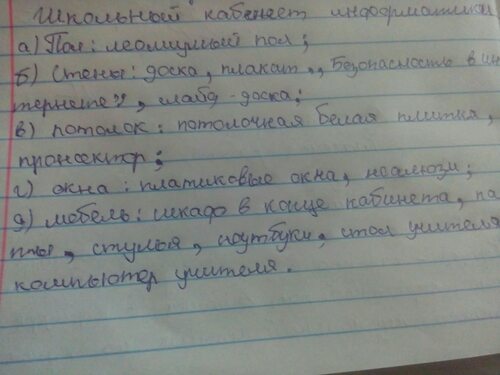 Школьный кабинет информатики
а) Пол: леолиумый пол;
б) Стены: доска, плакат „Безопасность в ин
тернете”, слабд-доска;
в) потолок: потолочная белая плитка,
проносктор;
г) окна: платиковые окна, носалюзи;
д) мебель: шкаф в конце кабинета, па
пты, стулья, ноутбуки, стол учителя
компьютер учителя.